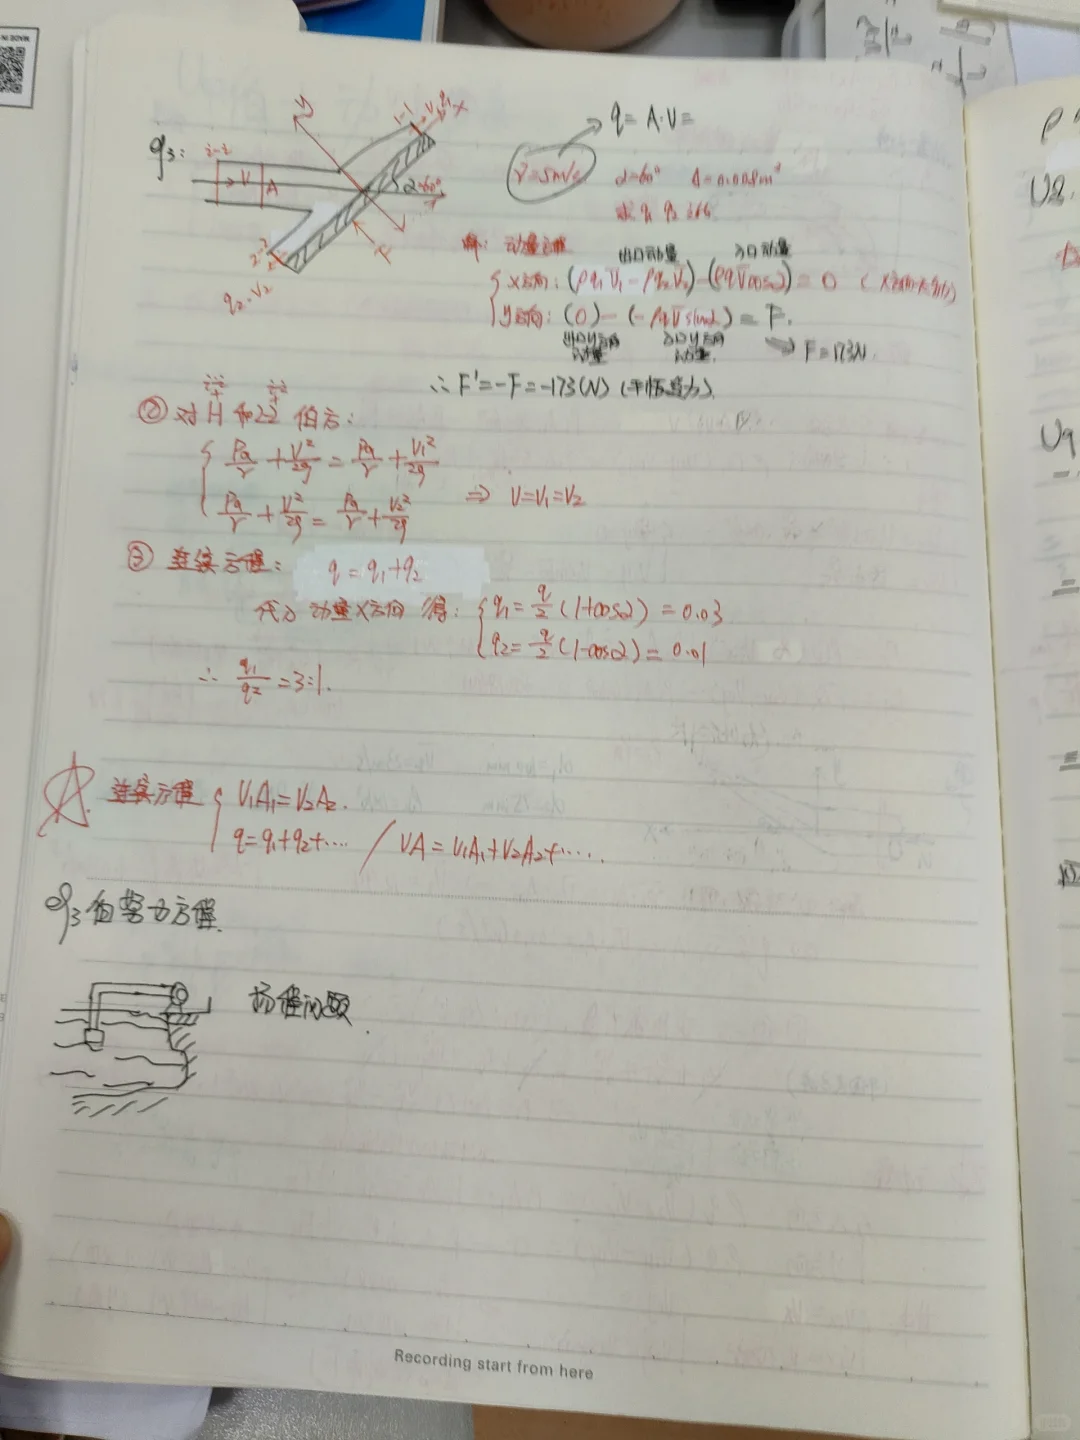 q3:
y
x
V
A
F
α=60°
q2. V2
q = A·V =
V=5m/s
α=60° A=0.008m²
求 q1 q2
解: 动量方程 出口动量 入口动量
X方向: (ρq1V1 - ρq2V2) - (ρqVcosα) = 0
Y方向: (0) - (-ρqVsinα) = F.
出口Y方向动量 入口Y方向动量 → F=173N.
∴ F'=-F=-173(N)
② 对 和 伯方:
Pa/γ + V²/2g = Pa/γ + V1²/2g
Pa/γ + V²/2g = Pa/γ + V2²/2g ⇒ V=V1=V2
③ 连续方程: q = q1+q2
代入动量X方向 得: q1 = q/2 (1+cosα) = 0.03
q2 = q/2 (1-cosα) = 0.01
∴ q1/q2 = 3:1.
连续方程 V1A1=V2A2.
q=q1+q2+···· / VA=V1A1+V2A2+····.
伯努力方程.
扬程问题.
Recording start from here